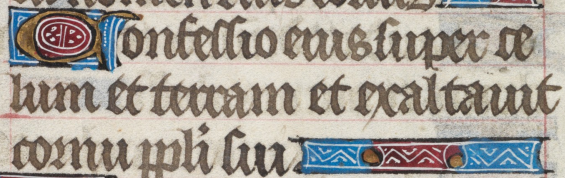 Confessio eius super ce
lum et terram et exaltauit
cornu ppli sui